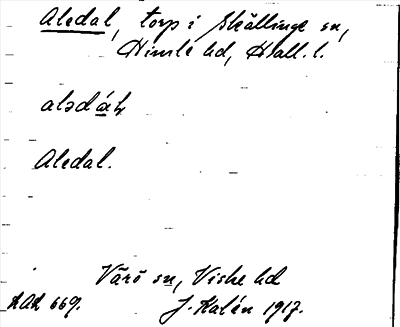 Aledal, torp i Skällinge sn,
Himle hd, Hall. l.
Aledal.
Värö sn, Viske hd
KAK 669. J. Kalén 1917.